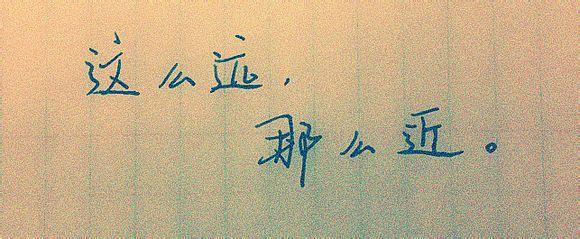 这么远，
那么近。